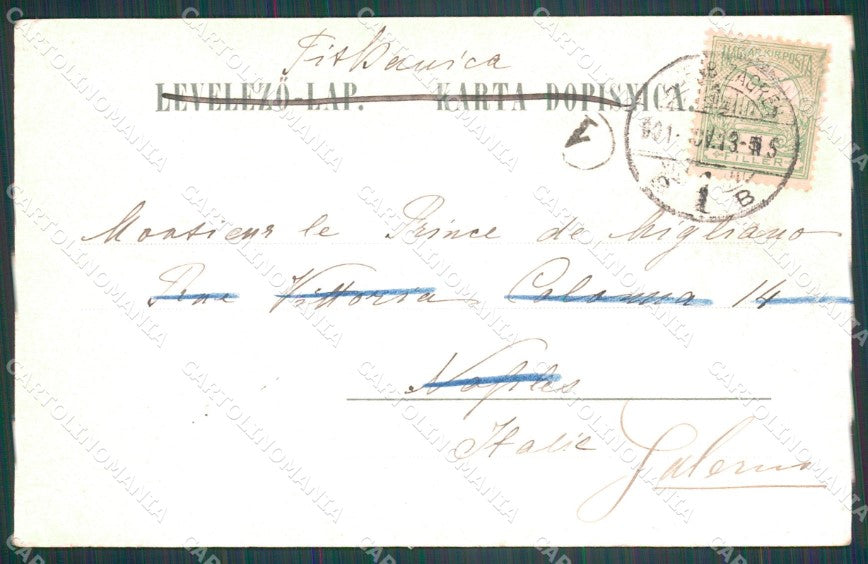 Titkanica
LEVELEZŐ-LAP. KARTA DOPISNICA.
MAGYAR KIR. POSTA
FILLER
1
B
Monsieur le Prince de Migliano
Rue Vittoria Colonna 14
Naples
Italie
Palermo
CARTOLINOMANIA